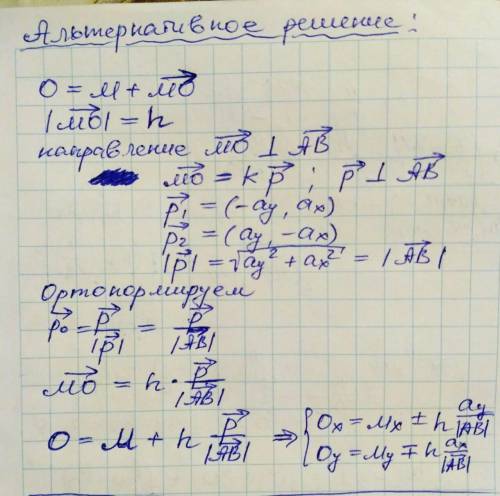 Альтернативное решение:
O = M + \vec{MO}
|\vec{MO}| = h
направление \vec{MO} ⊥ \vec{AB}
\vec{MO} = k \vec{p} ; \vec{p} ⊥ \vec{AB}
\vec{p}₁ = (-ay, ax)
\vec{p}₂ = (ay, -ax)
|\vec{p}| = √(ay² + ax²) = |\vec{AB}|
Ортонормируем
\vec{p₀} = \vec{p}/|\vec{p}| = \vec{p}/|\vec{AB}|
\vec{MO} = h · \vec{p}/|\vec{AB}|
O = M + h \vec{p}/|\vec{AB}| ⇒ { Ox = Mx ± h ay/|\vec{AB}|
Oy = My ∓ h ax/|\vec{AB}|